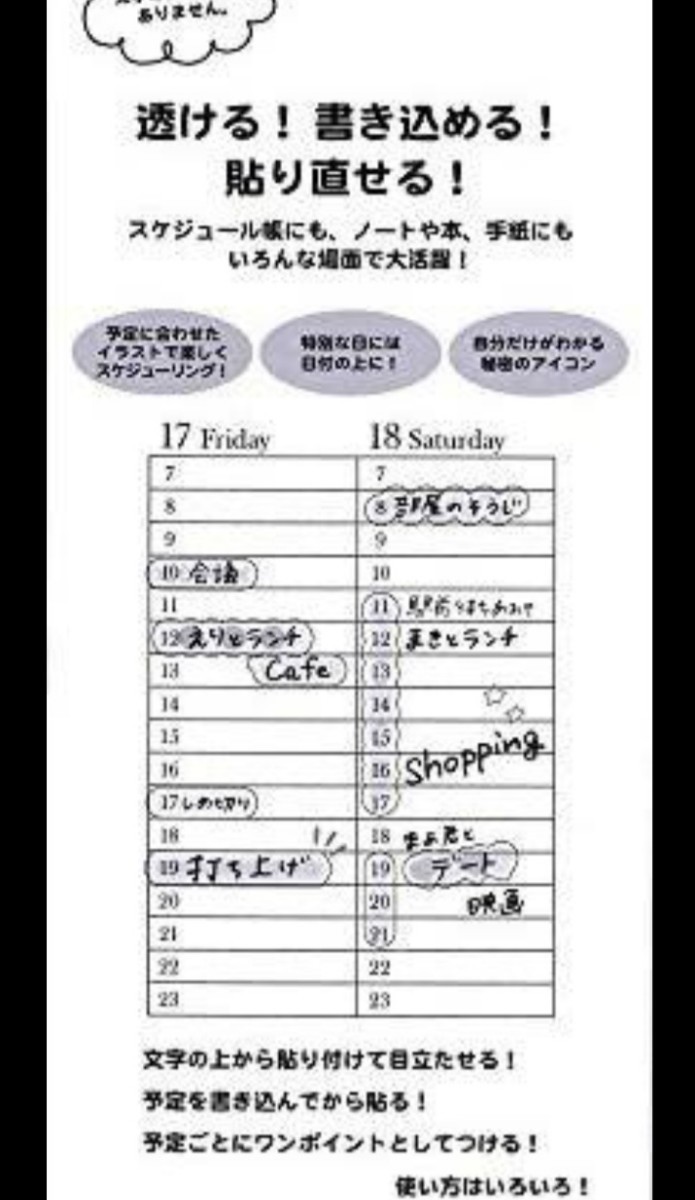 ありません。
透ける！ 書き込める！
貼り直せる！
スケジュール帳にも、ノートや本、手紙にも
いろんな場面で大活躍！
予定に合わせた
イラストで楽しく
スケジューリング！
特別な日には
日付の上に！
自分だけがわかる
秘密のアイコン
17 Friday
18 Saturday
7
7
8
8 部屋のそうじ
9
9
10 会議
10
11
11 駅前
12 えりとランチ
12 まきとランチ
13 Cafe
13
14
14
15
15
16
16 Shopping
17 しめ切り
17
18
18 まぁ君と
19 打ち上げ
19 デート
20
20 映画
21
21
22
22
23
23
文字の上から貼り付けて目立たせる！
予定を書き込んでから貼る！
予定ごとにワンポイントとしてつける！
使い方はいろいろ！